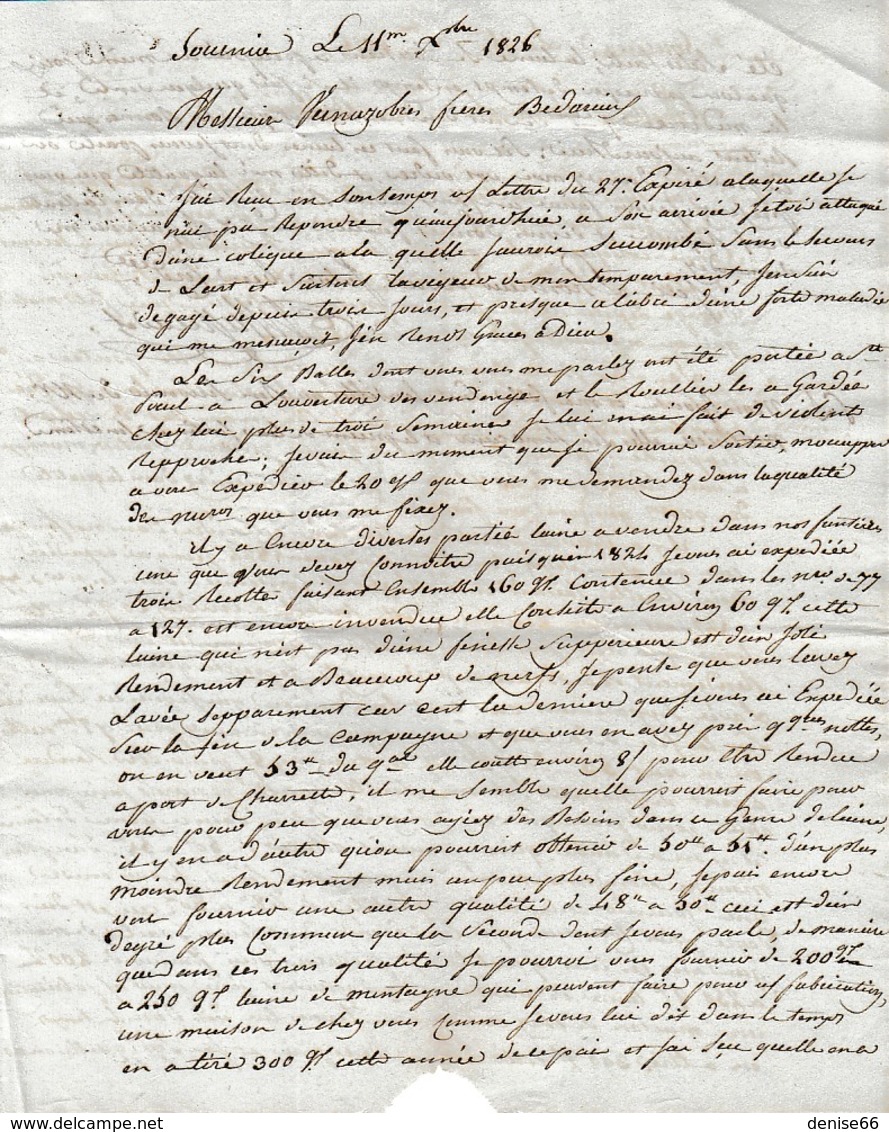 Sournia Le 11m Xbre 1826
Messieurs Vernazobres freres Bedarieux
J'ai Recu en son temps v/ Lettre du 27e Expiré a laquelle Je
n'ai pu Repondre qu'aujourdhuié, a Son arrivée J'etoi attaqué
d'une colique a la quelle J'auroié Succombé Sans le Secours
de L'art et Surtout la vigeur de mon temparement, J'en Suis
degagé depuis trois Jours, et presque a l'abri d'une forte maladie
qui me menaçoit, J'en Rends Graces a Dieu.
Les Six Balles dont vous vous me parlez ont été portée a St
Paul a L'ouverture des vendenge et le Roullier les a Gardée
chez lui plus de troi Semaines Je lui en ai fait de violent
Repproche; Je vais du moment que Je pourrai Sortir, m'occupper
a vous Expedier le 20 qx que vous me demandez dans la qualité
des nuros que vous me fixez.
il y a Encore diverses partiés laine a vendre dans nos
une que vous devez Connoitre puisqu'en 1824 Je vous ai expediée
trois Recoltes faisant Ensemble 160 qx Contenue dans les nros de 77
a 127. est encore invendue elle Consiste a Environ 60 qx cette
laine qui n'est pas d'une finesse Supperieure est d'un Joli
Rendement et a Beaucoup de nerfs, Je pense que vous l'avez
Lavée Sepparement car c'est la derniere que Je vous ai Expediée
Sur la fin de la Campagne et que vous en avez pris qques nottes,
on en veut 53tt du qal elle coutte environ 8f pour etre Rendue
a port de Charrette, il me Semble quelle pourroit faire pour
vous pour peu que vous ayiez des Besoins dans ce Genre de laine,
il y en a d'autre qu'on pourroit obtenir de 50tt a 51tt. d'un plus
moindre Rendement mais un peu plus fine, Je puis encore
vous fournir une autre qualité de 48tt a 50tt ceci est d'un
degré plus Commun que la Seconde dont Je vous parle, de maniere
que dans ces trois qualité Je pourroi vous fournir de 200 qx
a 250 qx laine de montagne qui peuvent faire pour v/ fabrication,
une maison de chez vous comme Je vous l'ai dit dans le temps
en a tiré 300 qx cette année de ce païs et J'ai Seu quelle en a
denise66